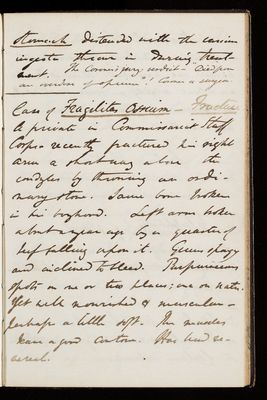 Stomach distended with the various
ingesta thrown in during treat-
ment. The Coroner's jury verdict - Died from
an overdose of opium"! Coroner a surgeon
Case of Fragilitas Ossium -
A private in Commissariat Staff
Corps recently fractured his right
arm a short way above the
condyles by throwing an ordi-
nary stone. Same bone broken
in his boyhood. Left arm broken
about a year ago by a quarter of
beef falling upon it. Gums spongy
and inclined to bleed. Purpurous
spots on one or two places; one on nates.
Yet well nourished & muscular -
perhaps a little soft. The muscles
have a good contour. Has had